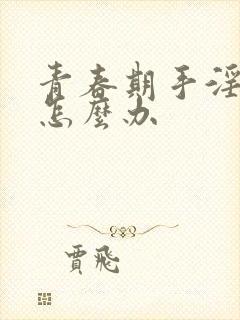 青春期手淫
怎麼办
賈飛